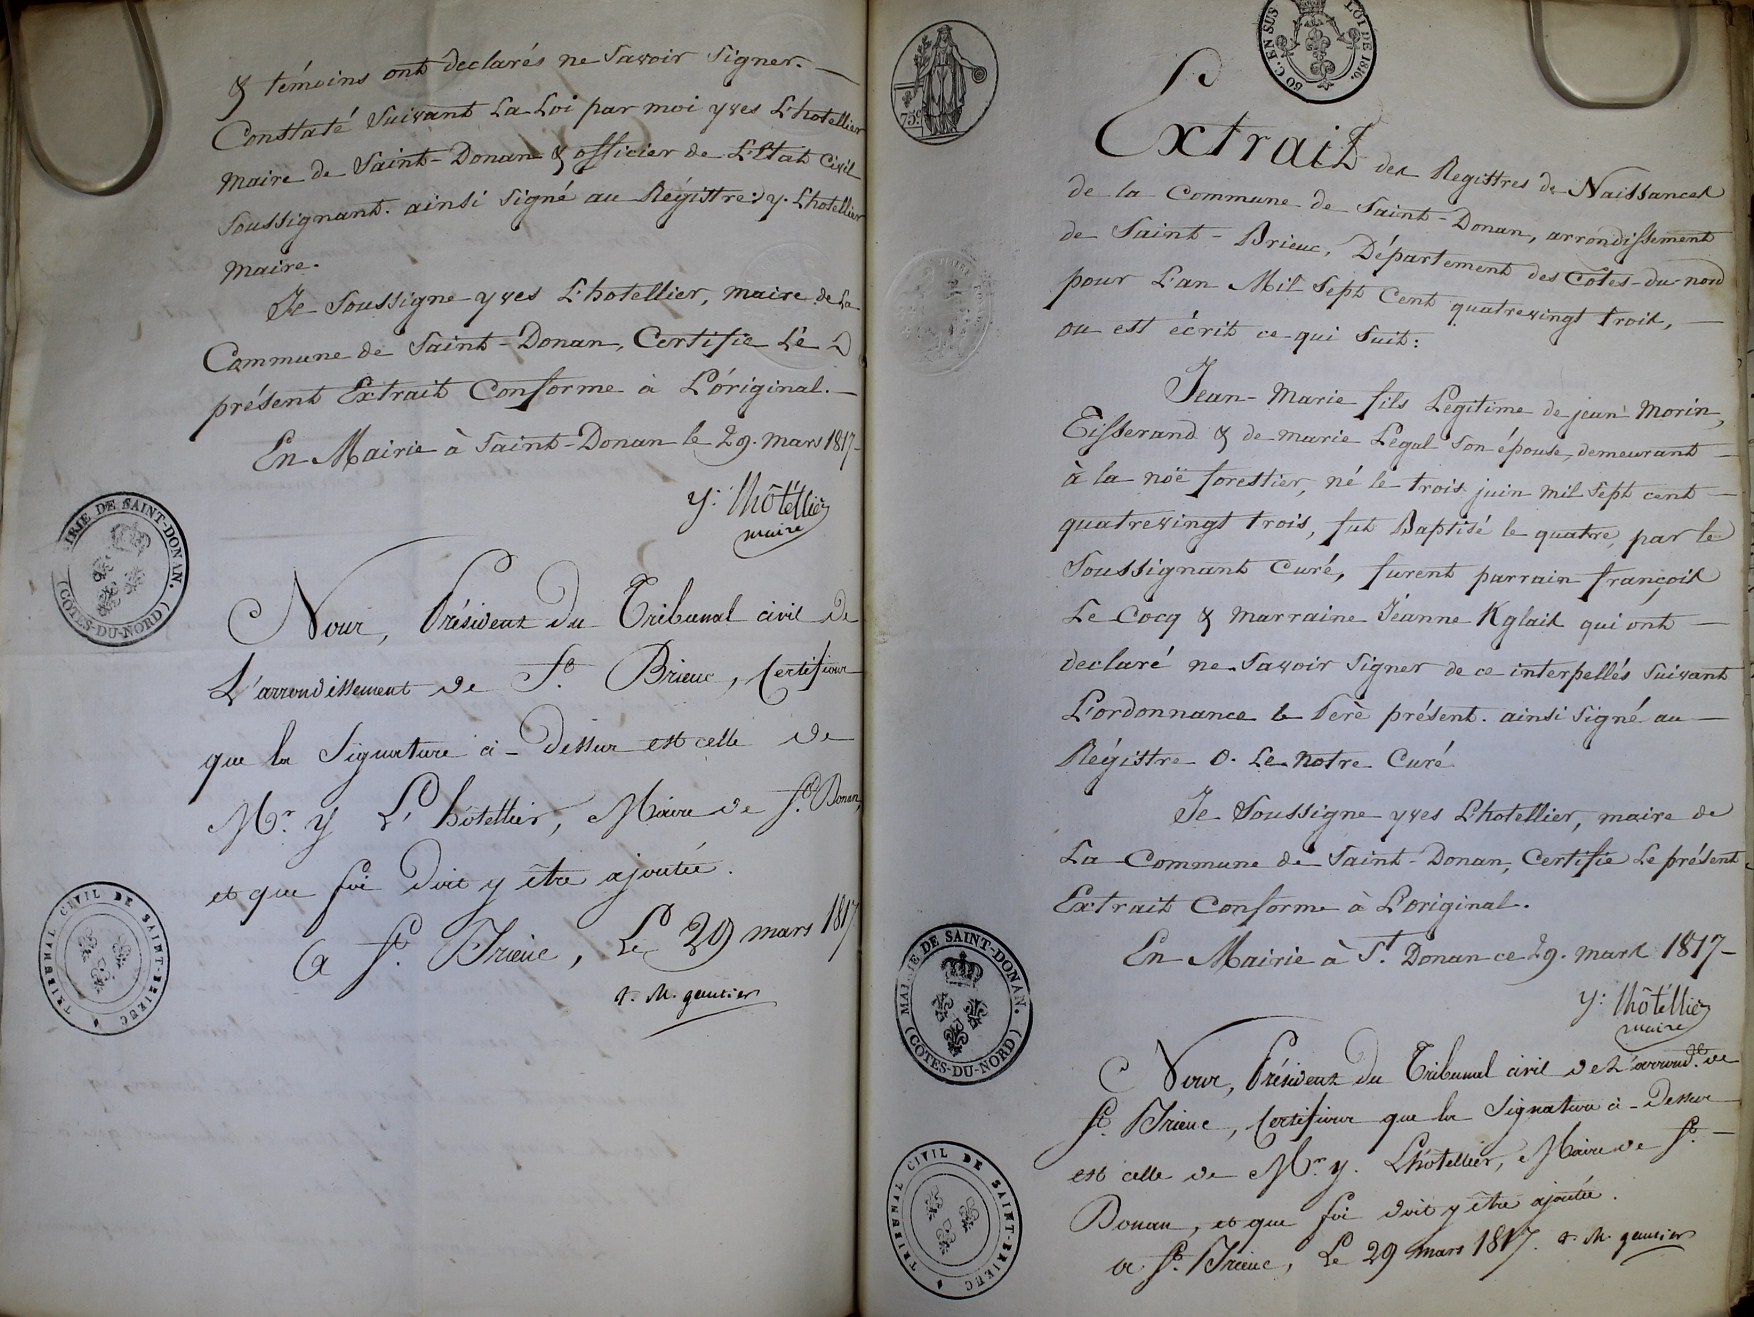 & témoins ont declarés ne Savoir Signer. —
Constaté Suivant La Loi par moi yves L'hotellier
maire de Saint-Donan & officier de L'Etat Civil
Soussignant. ainsi Signé au Régistre: y. Lhotellier
maire.
Je Soussigne yves L'hotellier, maire de La
Commune de Saint-Donan, Certifie Lé
présent Extrait Conforme à L'óriginal. —
En Mairie à Saint-Donan le 29. mars 1817-
y: lhôtéllier
maire
MAIRIE DE SAINT-DONAN.
(CÔTES-DU-NORD)
Nous, Président du Tribunal civil de
L'arrondissement de St. Brieuc, Certifions
que la Signature ci-Dessus est celle de
Mr. y L'hôtellier, Maire de St. Donan,
et que foi doit y être ajoutée.
a St. Brieuc, Le 29 mars 1817
M. gautier
TRIBUNAL CIVIL DE SAINT-BRIEUC
75c.
50 C. EN SUS
LOI DE 1816.
Extrait des Registres de Naissances
de la Commune de Saint-Donan, arrondissement
de Saint-Brieuc, Département des Côtes-du-nord
pour L'an Mil Sept Cent quatrevingt trois, —
ou est écrit ce qui Suit:
Jean-Marie fils Legitime de jean Morin,
Tisserand & de marie Legal Son épouse, demeurant —
à la noë forestier, né le trois juin mil Sept cent —
quatrevingt trois, fut Baptisé le quatre, par le
Soussignant Curé, furent parrain françois
Le Cocq & marraine Jéanne Kglais qui ont —
declaré ne Savoir Signer de ce interpellés Suivant
L'ordonnance le Perè présent. ainsi Signé au —
Régistre O. Le Notre Curé
Je Soussigne yves Lhotellier, maire de
La Commune de Saint-Donan, Certifie Le présent
Extrait Conforme à L'original.
En Mairie à St. Donan ce 29. mars 1817-
y: lhôtéllier
maire
MAIRIE DE SAINT-DONAN.
(CÔTES-DU-NORD)
Nous, Président du Tribunal civil de L'arrond. de
St. Brieuc, Certifions que la Signature ci-Dessus
est celle de Mr. y. Lhôtellier, Maire de St. —
Donan, et que foi doit y être ajoutée.
a St. Brieuc, Le 29 mars 1817. M. gautier
TRIBUNAL CIVIL DE SAINT-BRIEUC